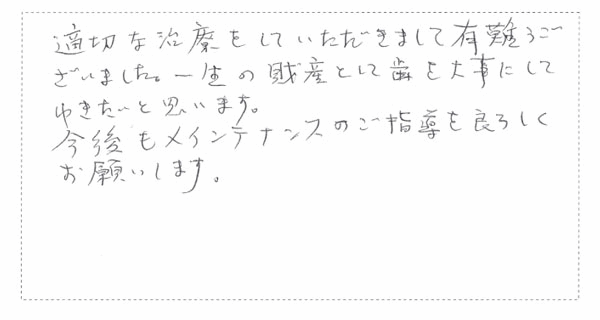 適切な治療をしていただきまして有難うご
ざいました。一生の財産として歯を大事にして
ゆきたいと思います。
今後もメインテナンスのご指導を良ろしく
お願いします。